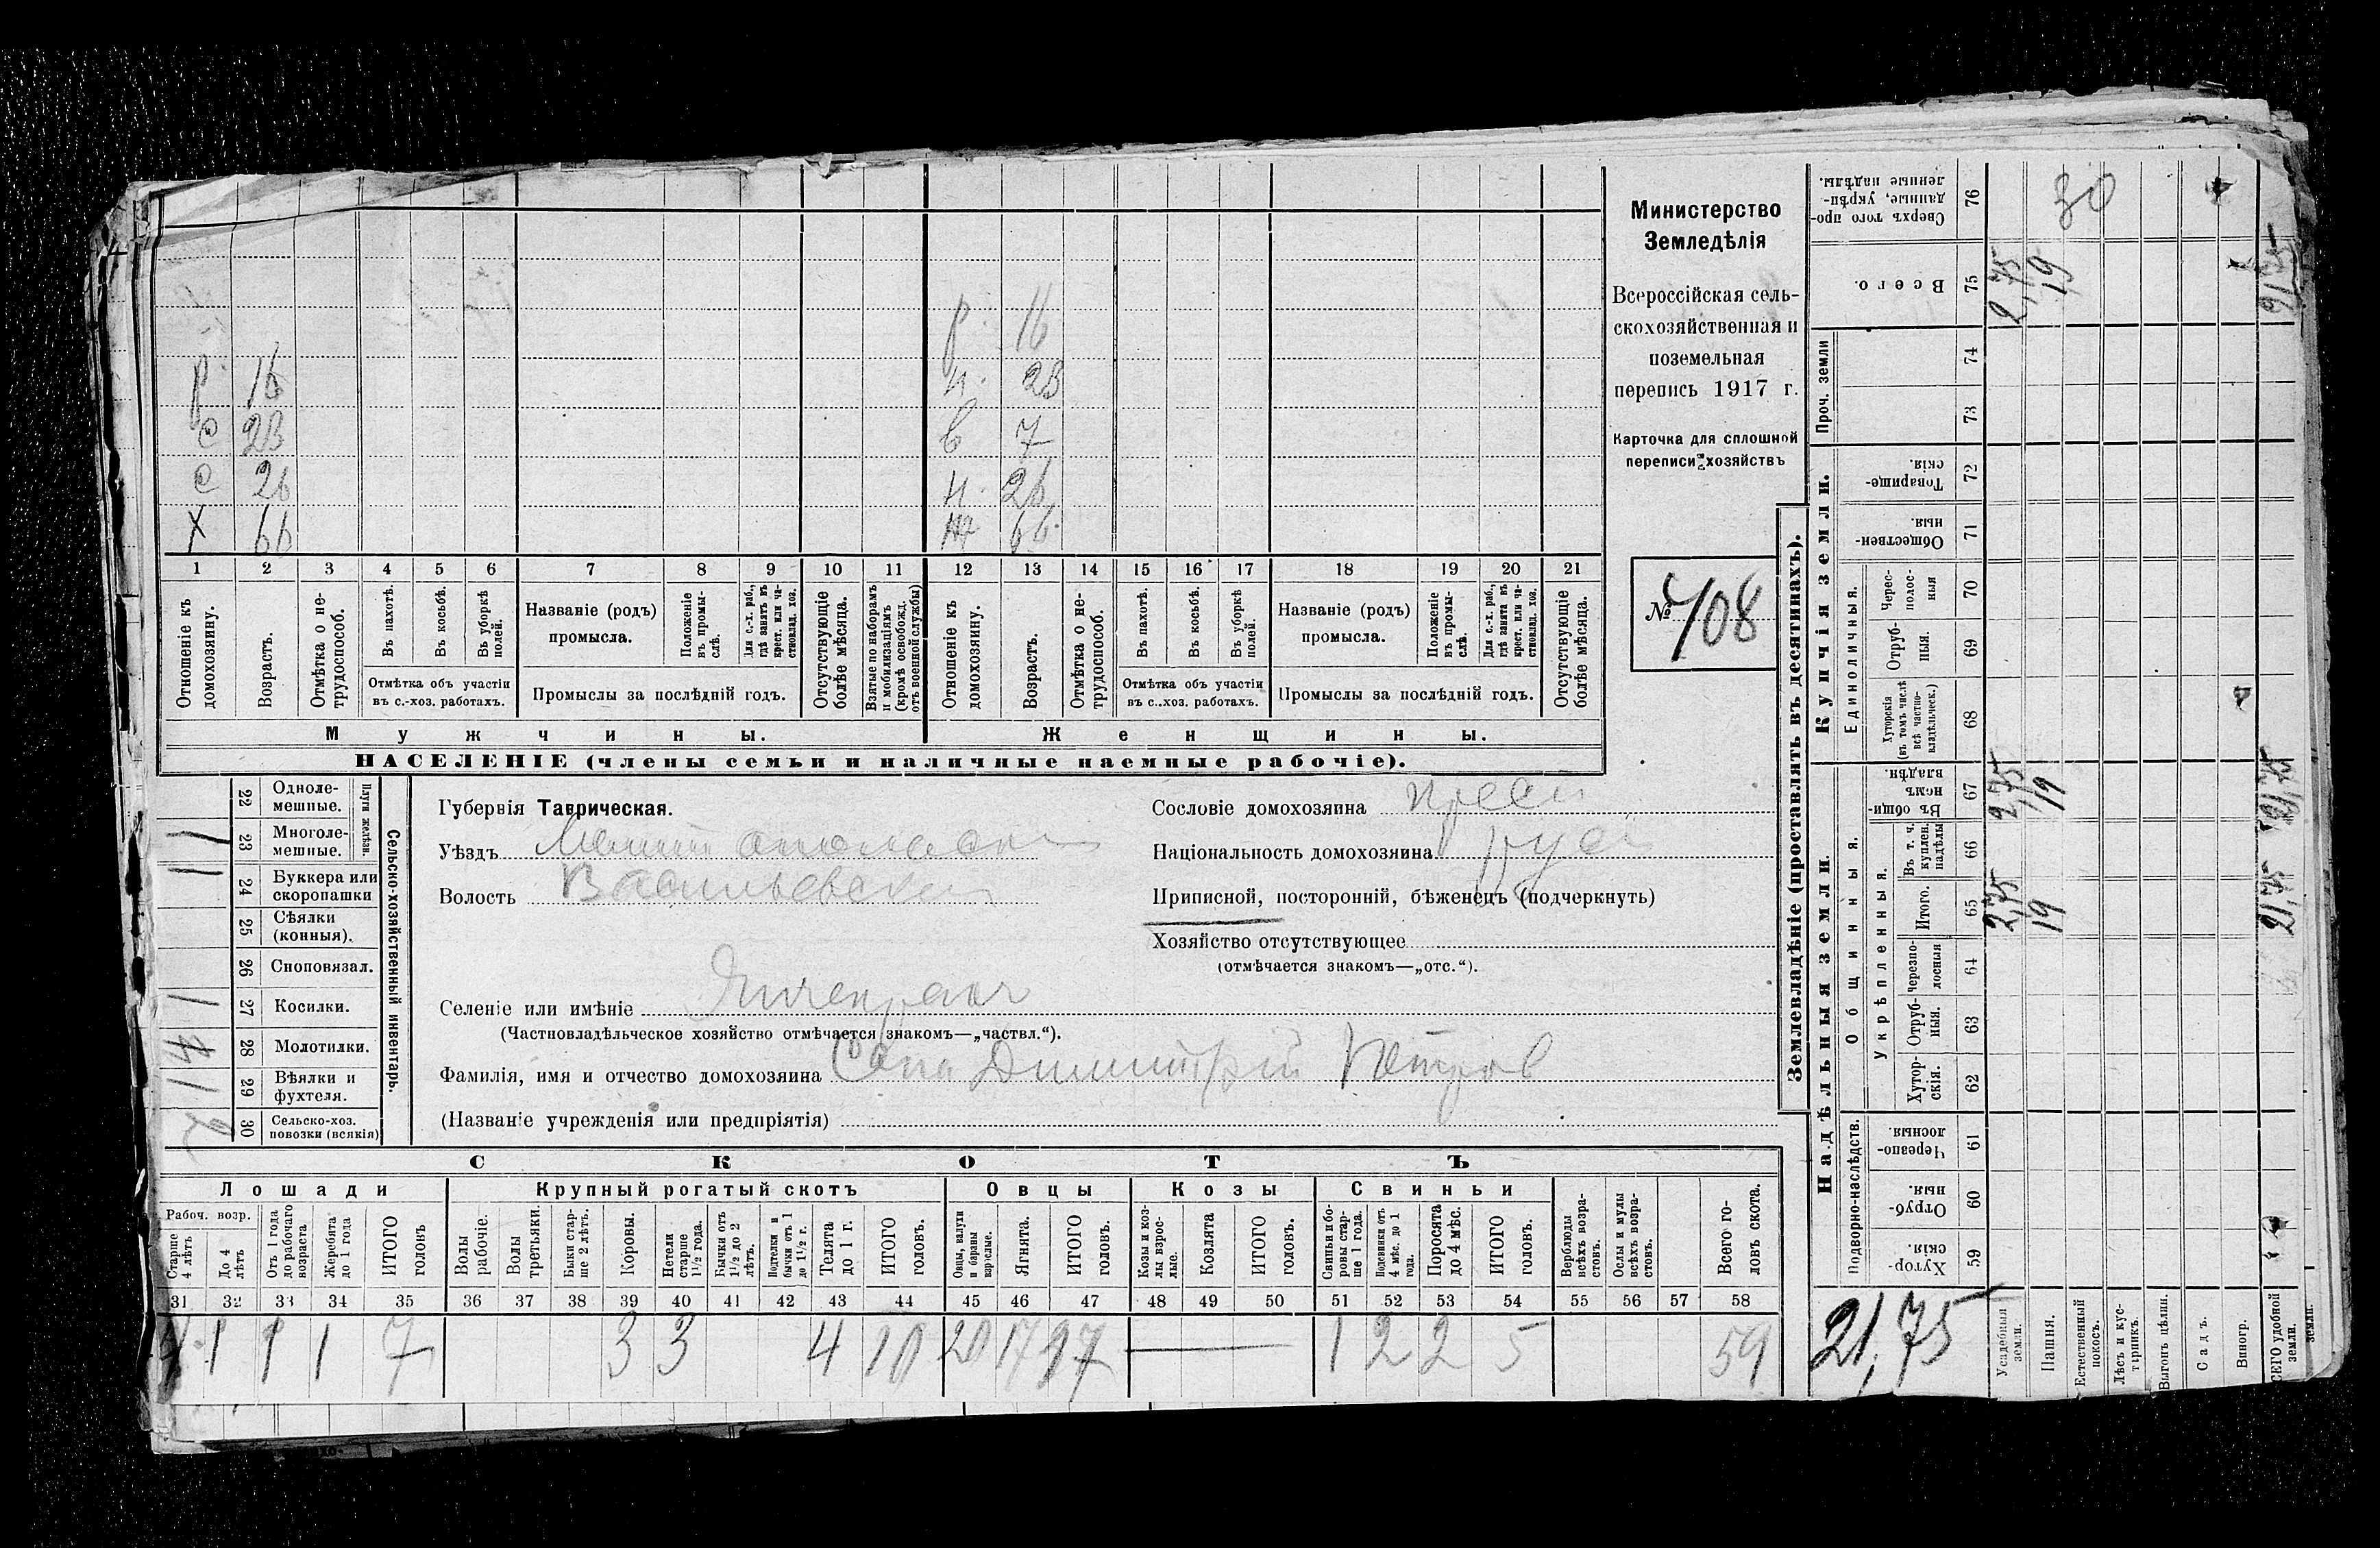 Министерство
Земледѣлія
Всероссійская сель-
скохозяйственная и
поземельная
перепись 1917 г.
Карточка для сплошной
переписи хозяйствъ
№ 708
р. 16
р. 16 н. 23
с 23 в 7
с 26 н. 26
х 66 ж 66.
1 2 3 4 5 6 7 8 9 10 11 12 13 14 15 16 17 18 19 20 21
Отношеніе къ домохозяину.
Возрастъ.
Отмѣтка о не-трудоспособ.
Въ пахотѣ.
Въ косьбѣ.
Въ уборкѣ полей.
Отмѣтка объ участіи
въ с.-хоз. работахъ.
Названіе (родъ)
промысла.
Положеніе въ промы-слѣ.
Для с.-х. раб., гдѣ занятъ въ крест. или ча-стновлад. хоз.
Промыслы за послѣдній годъ.
Отсутствующіе болѣе мѣсяца.
Взятые по наборамъ и мобилизаціямъ (кромѣ освобожд. отъ военной службы)
Отношеніе къ домохозяину.
Возрастъ.
Отмѣтка о не-трудоспособ.
Въ пахотѣ.
Въ косьбѣ.
Въ уборкѣ полей.
Отмѣтка объ участіи
въ с.-хоз. работахъ.
Названіе (родъ)
промысла.
Положеніе въ промы-слѣ.
Для с.-х. раб., гдѣ занята въ крест. или ча-стновлад. хоз.
Промыслы за послѣдній годъ.
Отсутствующіе болѣе мѣсяца.
Мужчины. Женщины.
НАСЕЛЕНІЕ (члены семьи и наличные наемные рабочіе).
Сельско-хозяйственный инвентарь.
Плуги желѣзн.
22 Одноле-мешные.
23 Многоле-мешные. 1
24 Буккера или скоропашки 1
25 Сѣялки (конныя).
26 Сноповязал.
27 Косилки. 1
28 Молотилки.
29 Вѣялки и фухтеля. 1
30 Сельско-хоз. повозки (всякія) 2
Губернія Таврическая.
Уѣздъ Мелитопольскій
Волость Васильевская
Селеніе или имѣніе
(Частновладѣльческое хозяйство отмѣчается знакомъ—„частвл.“).
Фамилія, имя и отчество домохозяина Сопа Димитрій Петров
(Названіе учрежденія или предпріятія)
Сословіе домохозяина крест
Національность домохозяина рус
Приписной, посторонній, бѣженецъ (подчеркнуть)
Хозяйство отсутствующее
(отмѣчается знакомъ—„отс.“).
СКОТЪ
Лошади Крупный рогатый скотъ Овцы Козы Свиньи
Рабоч. возр.
Старше 4 лѣтъ
До 4 лѣтъ
Отъ 1 года до рабочаго возраста
Жеребята до 1 года
ИТОГО головъ
Волы рабочіе.
Волы третьяки.
Быки стар-ше 2 лѣтъ.
Коровы.
Нетели старше 1½ года.
Бычки отъ 1½ до 2 лѣтъ.
Подтелки и бычки отъ 1 до 1½ г.
Телята до 1 г.
ИТОГО головъ.
Овцы, валухи и бараны взрослые.
Ягнята.
ИТОГО головъ.
Козы и коз-лы взрос-лые.
Козлята
ИТОГО головъ.
Свиньи и бо-ровы стар-ше 1 года.
Подсвинки отъ 4 мѣс. до 1 года.
Поросята до 4 мѣс.
ИТОГО головъ.
Верблюды всѣхъ возра-стовъ.
Ослы и мулы всѣхъ возра-стовъ.
Всего го-ловъ скота.
31 32 33 34 35 36 37 38 39 40 41 42 43 44 45 46 47 48 49 50 51 52 53 54 55 56 57 58
4 1 1 1 7 3 3 4 10 20 17 37 1 2 2 5 59
Землевладѣніе (проставлять въ десятинахъ).
Надѣльныя земли. Купчія земли. Проч. земли
Подворно-наслѣдств. Общинныя. Укрѣпленныя. Единоличныя.
59 Хутор-скія.
60 Отруб-ныя.
61 Черезпо-лосныя.
62 Хутор-скія.
63 Отруб-ныя.
64 Черезпо-лосныя
65 Итого.
66 Въ т. ч. куплен. надѣлы
67 Въ общи-номъ владѣн.
68 Хуторскія (въ томъ числѣ всѣ частно-владѣльческ.)
69 Отруб-ныя.
70 Черес-полос-ныя
71 Обществен-ныя.
72 Товарище-скія.
73
74
75 Всего.
76 Сверхъ того про-данные, укрѣп-ленные надѣлы.
Усадебныя земли. 2,75 2,75 2,75
Пашня. 19 19 19 30
Естественный покосъ.
Лѣсъ и кус-тарникъ.
Выгонъ цѣлин.
Садъ.
Виногр.
ВСЕГО удобной земли. 21,75 21,75 21,75
21,75